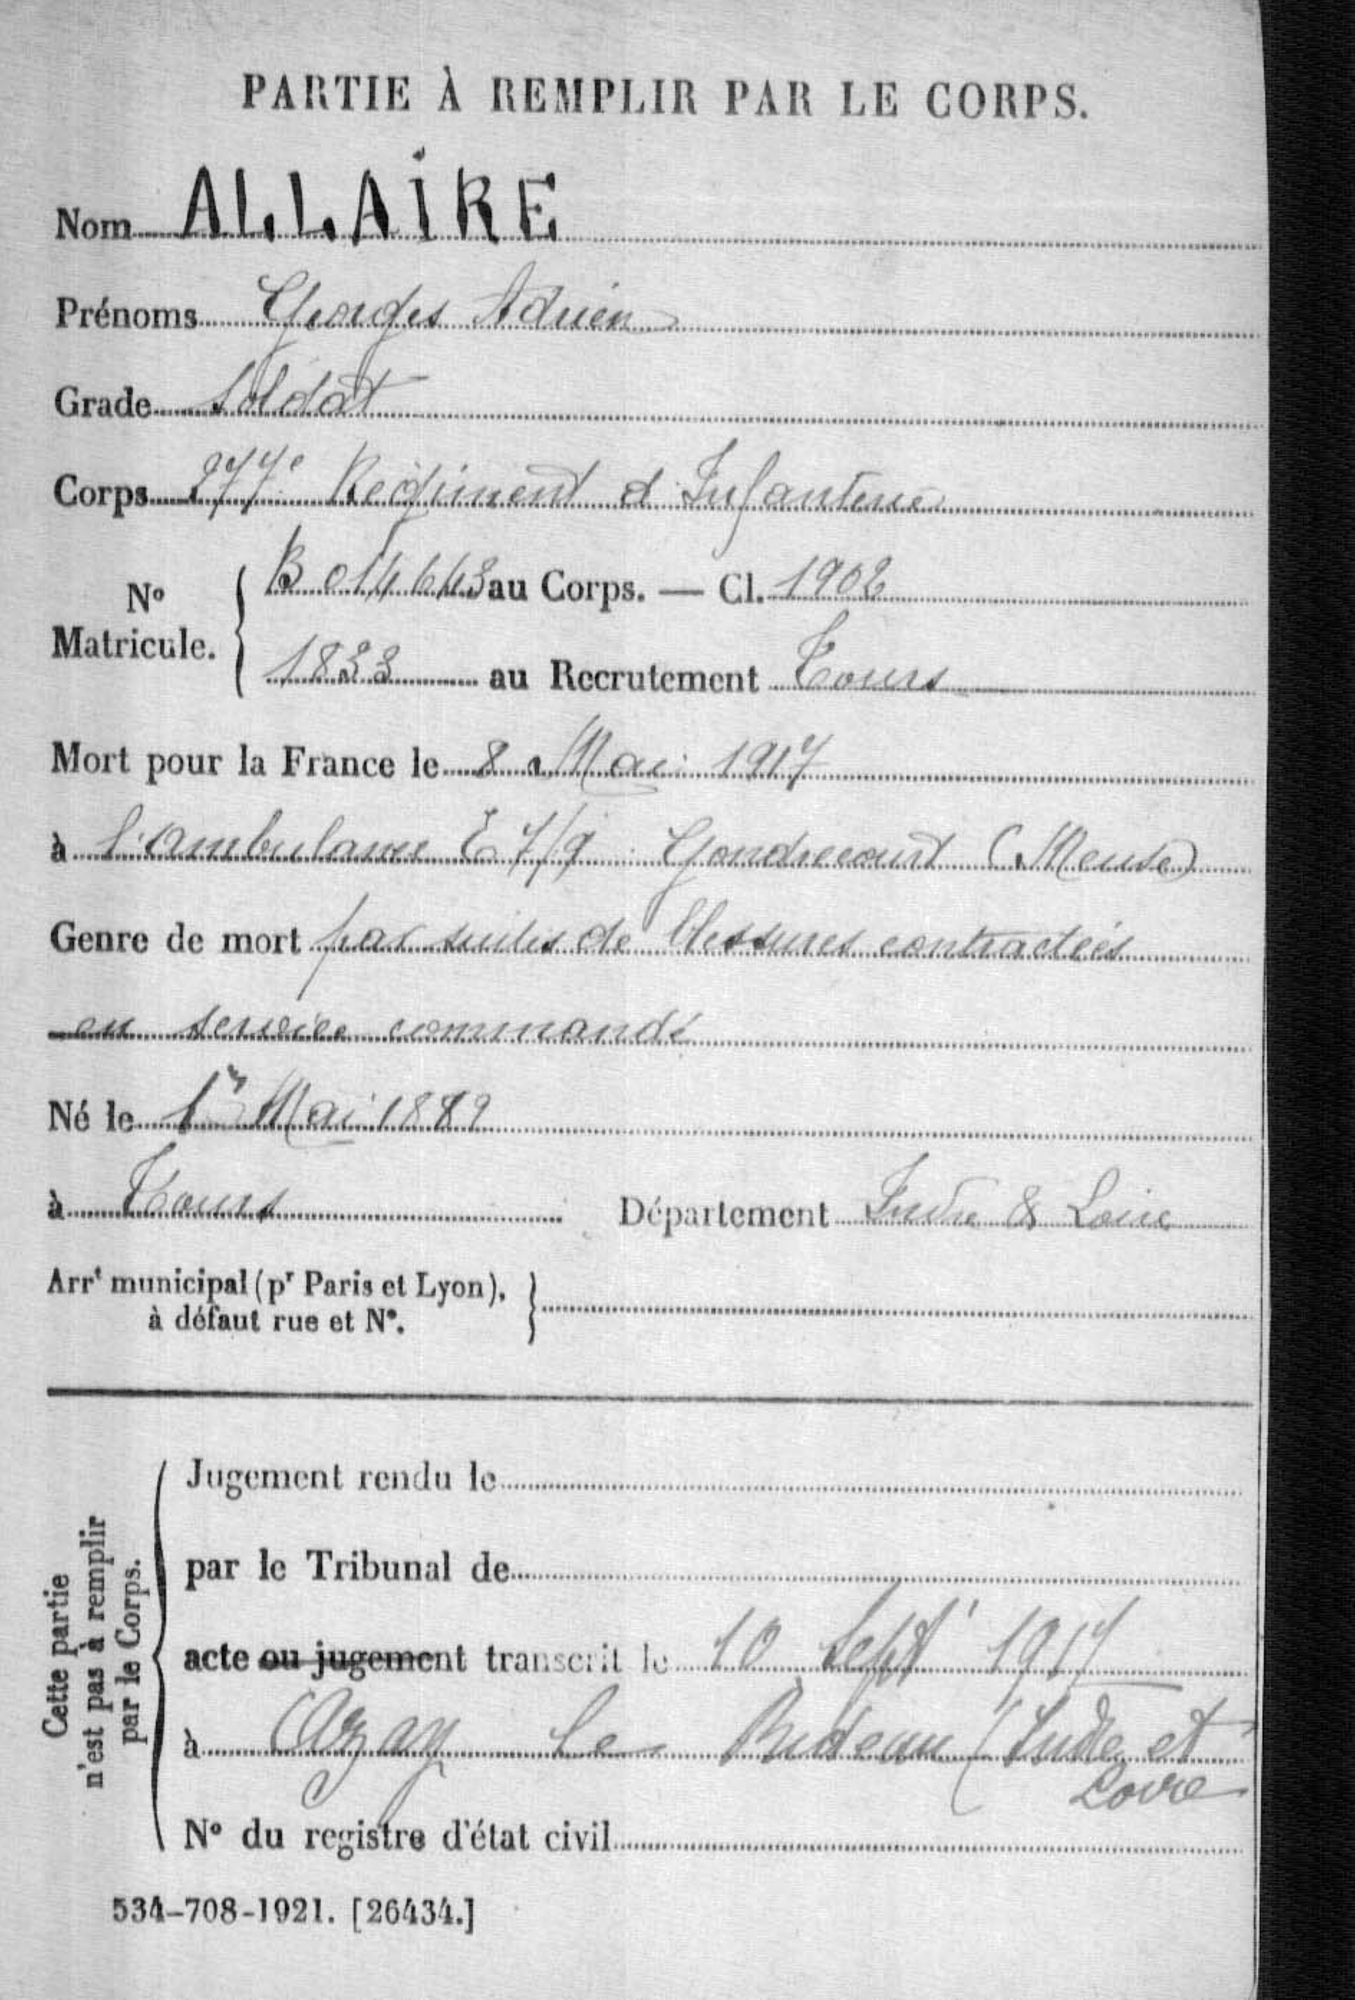 PARTIE À REMPLIR PAR LE CORPS.
Nom ALLAIRE
Prénoms Georges Adrien
Grade Soldat
Corps 277e Régiment d'Infanterie
No Matricule. { B 014643 au Corps. — Cl. 1902
1833 au Recrutement Tours
Mort pour la France le 8 Mai 1917
à l'Ambulance E 7/9 Gondrecourt (Meuse)
Genre de mort par suites de blessures contractées
en service commandé
Né le 1er Mai 1882
à Tours Département Indre & Loire
Arrt municipal (pr Paris et Lyon), à défaut rue et No. }
Cette partie n'est pas à remplir par le Corps.
Jugement rendu le
par le Tribunal de
acte ou jugement transcrit le 10 Sept 1917
à Azay le Rideau (Indre et
Loire
No du registre d'état civil
534-708-1921. [26434.]